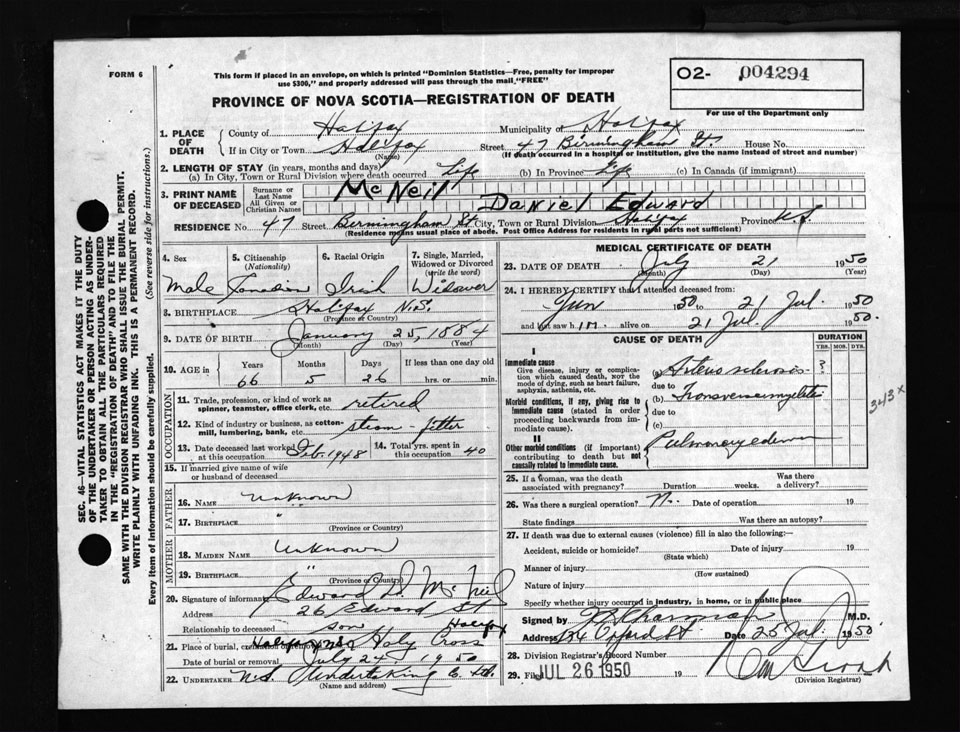 FORM 6
This form if placed in an envelope, on which is printed "Dominion Statistics—Free, penalty for improper
use $300," and properly addressed will pass through the mail "FREE"
O2- 004294
PROVINCE OF NOVA SCOTIA—REGISTRATION OF DEATH
For use of the Department only
1. PLACE OF DEATH County of Halifax Municipality of Halifax
If in City or Town Halifax Street 47 Birmingham St. House No.
(Name) (If death occurred in a hospital or institution, give the name instead of street and number)
2. LENGTH OF STAY (in years, months and days)
(a) In City, Town or Rural Division where death occurred Life (b) In Province Life (c) In Canada (if immigrant)
3. PRINT NAME OF DECEASED Surname or Last Name McNeil
All Given or Christian Names Daniel Edward
RESIDENCE No. 47 Street Birmingham St City, Town or Rural Division Halifax Province N.S.
(Residence means usual place of abode. Post Office Address for residents in rural parts not sufficient)
4. Sex 5. Citizenship (Nationality) 6. Racial Origin 7. Single, Married, Widowed or Divorced (write the word)
Male Canadian Irish Widower
8. BIRTHPLACE Halifax N.S.
(Province or Country)
9. DATE OF BIRTH January 25, 1884
(Month) (Day) (Year)
10. AGE in Years Months Days If less than one day old
66 5 26 hrs. or min.
OCCUPATION
11. Trade, profession, or kind of work as spinner, teamster, office clerk, etc. retired
12. Kind of industry or business, as cotton-mill, lumbering, bank, etc. steam-fitter
13. Date deceased last worked at this occupation Feb. 1948 14. Total yrs. spent in this occupation 40
15. If married give name of wife or husband of deceased
FATHER
16. NAME Unknown
17. BIRTHPLACE "
(Province or Country)
MOTHER
18. MAIDEN NAME Unknown
19. BIRTHPLACE "
(Province or Country)
20. Signature of informant Edward D. McNeil
Address 26 Edward St Halifax
Relationship to deceased son
21. Place of burial, cremation or removal Holy Cross
Date of burial or removal July 24, 1950
22. UNDERTAKER N.S. Undertaking Co. Ltd.
(Name and address)
MEDICAL CERTIFICATE OF DEATH
23. DATE OF DEATH July 21 1950
(Month) (Day) (Year)
24. I HEREBY CERTIFY that I attended deceased from:
Jun 1950 to 21 Jul. 1950
and last saw him alive on 21 Jul. 1950.
CAUSE OF DEATH DURATION
YRS. MOS. DYS.
I
Immediate cause
Give disease, injury or complication which caused death, not the mode of dying, such as heart failure, asphyxia, asthenia, etc.
(a) Arteriosclerosis ?
due to
Morbid conditions, if any, giving rise to immediate cause (stated in order proceeding backwards from immediate cause).
(b) Transverse myelitis
due to
(c)
II
Other morbid conditions (if important) contributing to death but not causally related to immediate cause.
Pulmonary edema
343x
25. If a woman, was the death associated with pregnancy? Duration weeks. Was there a delivery?
26. Was there a surgical operation? No. Date of operation 19
State findings Was there an autopsy?
27. If death was due to external causes (violence) fill in also the following:—
Accident, suicide or homicide? Date of injury 19
(State which)
Manner of injury
(How sustained)
Nature of injury
Specify whether injury occurred in industry, in home, or in public place
Signed by M.D.
Address 134 Oxford St Date 25 Jul. 1950
28. Division Registrar's Record Number
29. Filed JUL 26 1950 19
(Division Registrar)
SEC. 46—VITAL STATISTICS ACT MAKES IT THE DUTY
OF THE UNDERTAKER OR PERSON ACTING AS UNDER-
TAKER TO OBTAIN ALL THE PARTICULARS REQUIRED
IN THE "REGISTRATION OF DEATH" AND TO FILE THE
SAME WITH THE DIVISION REGISTRAR WHO SHALL ISSUE THE BURIAL PERMIT.
WRITE PLAINLY WITH UNFADING INK. THIS IS A PERMANENT RECORD.
Every item of information should be carefully supplied. (See reverse side for instructions.)